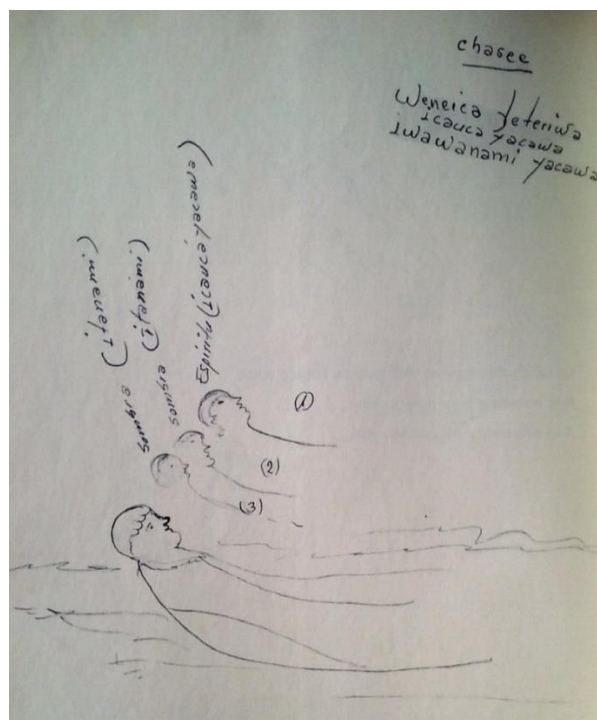 chasee
Weneica yeteriwa
icauca yacawa
iwawanami yacawa
Espiritu (icauca yacawa)
(1)
sombra (iyanami)
(2)
sombra (iyanami)
(3)